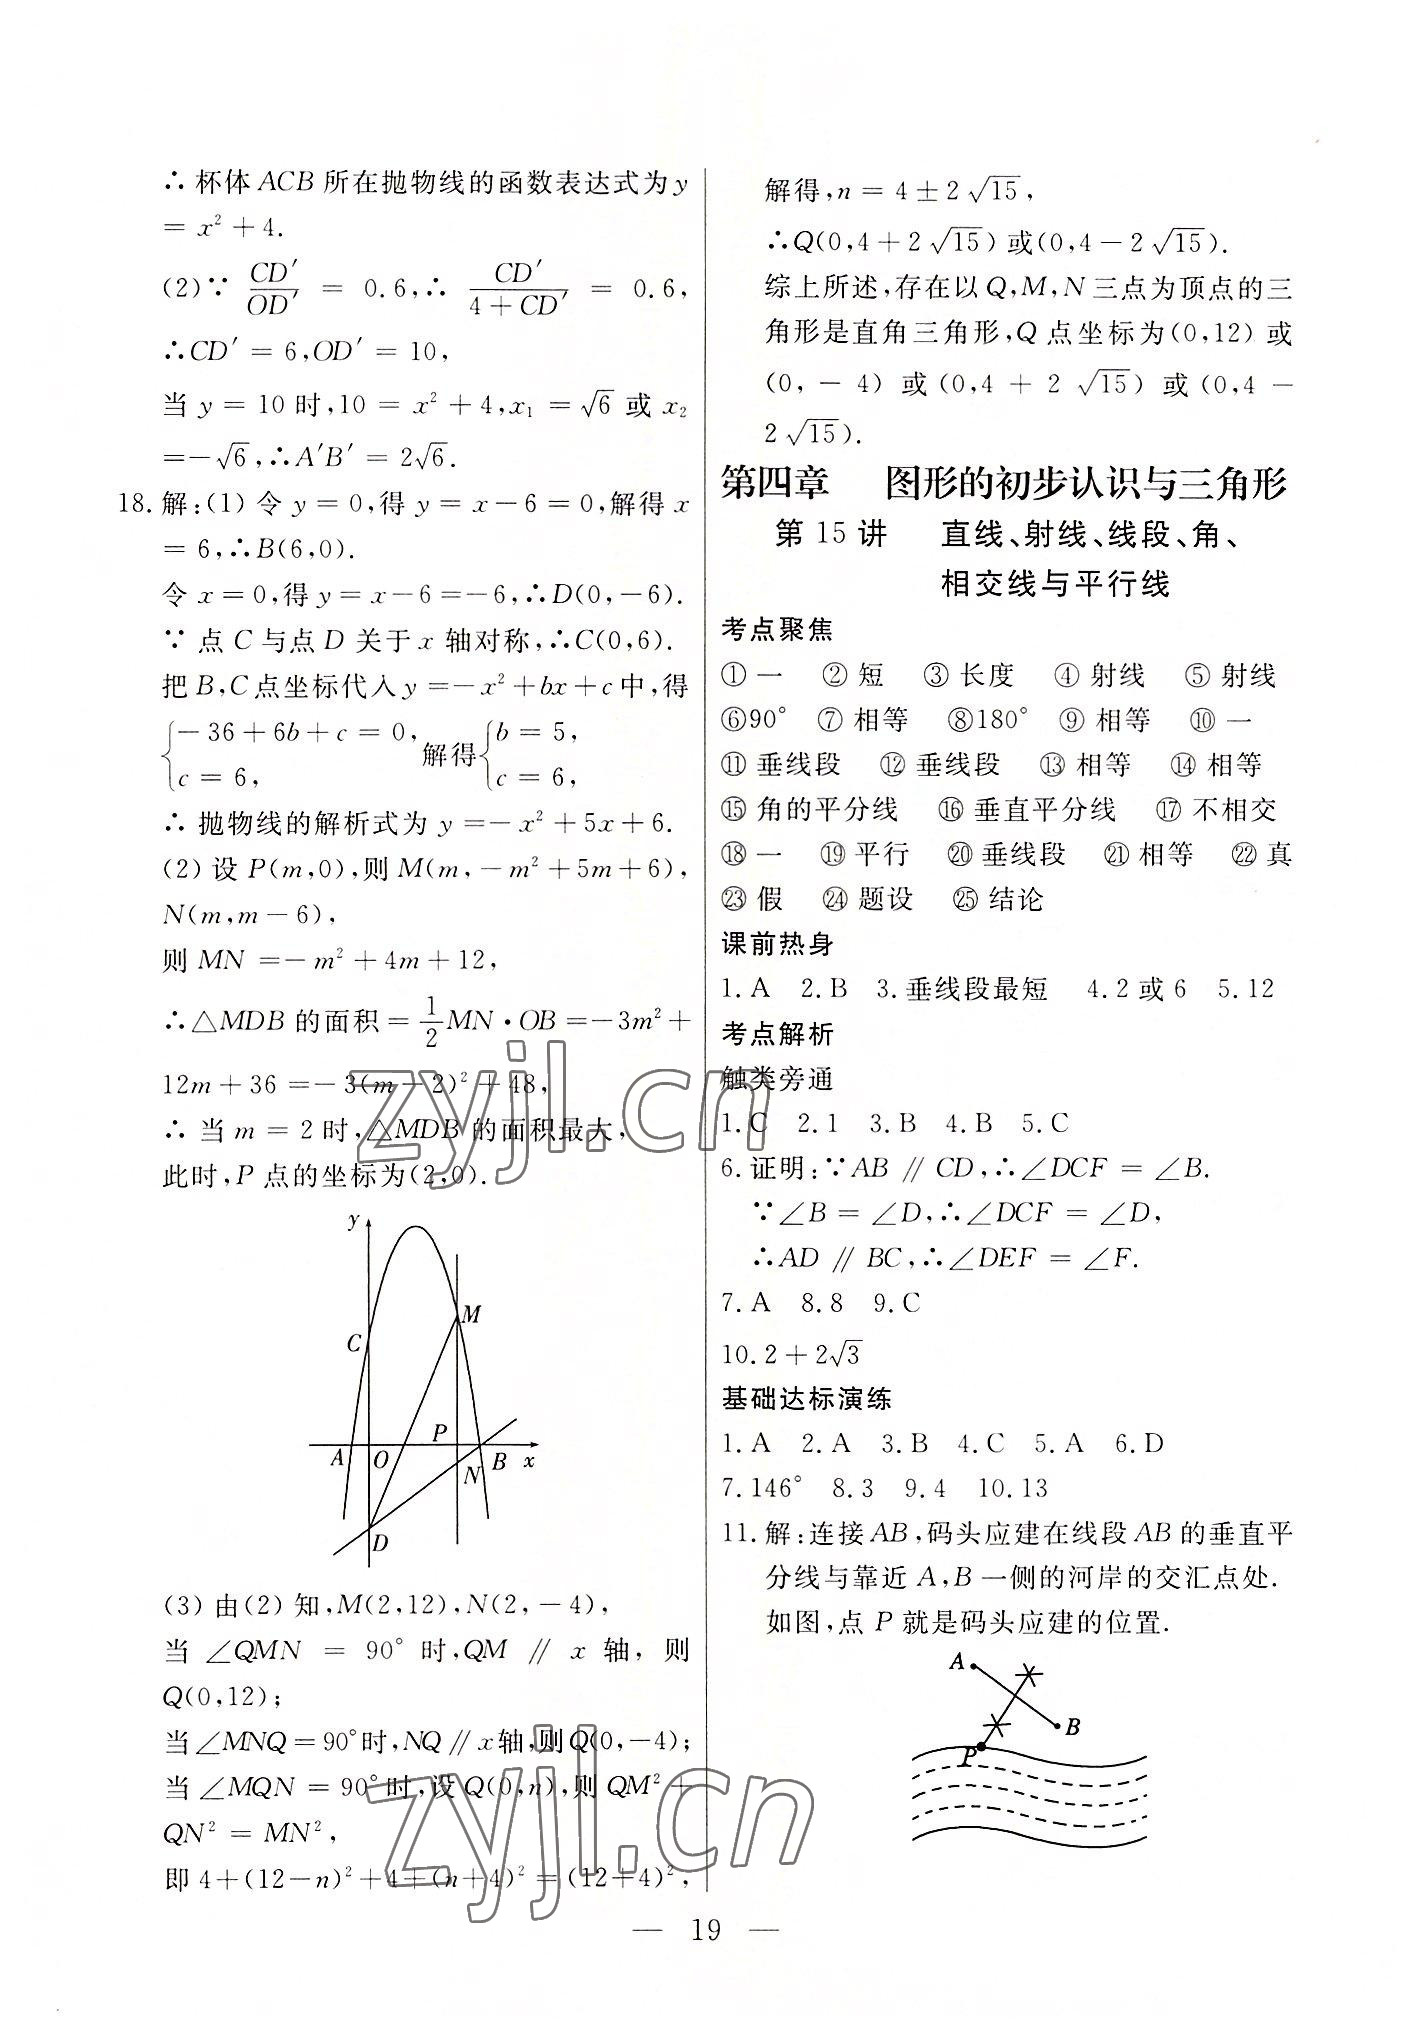 ∴ 杯体 ACB 所在抛物线的函数表达式为 y
= x² + 4.
(2)∵ CD′/OD′ = 0.6,∴ CD′/(4 + CD′) = 0.6,
∴CD′ = 6,OD′ = 10,
当 y = 10 时,10 = x² + 4,x₁ = √6 或 x₂
=−√6,∴A′B′ = 2√6.
18. 解:(1) 令 y = 0,得 y = x − 6 = 0,解得 x
= 6,∴B(6,0).
令 x = 0,得 y = x − 6 =−6,∴D(0,−6).
∵ 点 C 与点 D 关于 x 轴对称,∴C(0,6).
把 B,C 点坐标代入 y =− x² + bx + c 中,得
{− 36 + 6b + c = 0, 解得 {b = 5,
c = 6, c = 6,
∴ 抛物线的解析式为 y =− x² + 5x + 6.
(2) 设 P(m,0),则 M(m,− m² + 5m + 6),
N(m,m − 6),
则 MN =− m² + 4m + 12,
∴△MDB 的面积 = 1/2 MN · OB =− 3m² +
12m + 36 =− 3(m − 2)² + 48,
∴ 当 m = 2 时,△MDB 的面积最大,
此时,P 点的坐标为(2,0).
y
M
C
P
A O N B x
D
(3) 由(2) 知,M(2,12),N(2,−4),
当 ∠QMN = 90° 时,QM ∥ x 轴, 则
Q(0,12);
当 ∠MNQ = 90°时,NQ ∥ x 轴,则Q(0,−4);
当 ∠MQN = 90°时,设Q(0,n),则 QM² +
QN² = MN²,
即 4+(12−n)²+4+(n+4)²=(12+4)²,
解得,n = 4 ± 2√15,
∴Q(0,4 + 2√15) 或(0,4 − 2√15).
综上所述,存在以 Q,M,N 三点为顶点的三
角形是直角三角形,Q 点坐标为(0,12) 或
(0,− 4) 或 (0,4 + 2√15) 或 (0,4 −
2√15).
第四章 图形的初步认识与三角形
第 15 讲 直线、射线、线段、角、
相交线与平行线
考点聚焦
① 一 ② 短 ③ 长度 ④ 射线 ⑤ 射线
⑥90° ⑦ 相等 ⑧180° ⑨ 相等 ⑩ 一
⑪ 垂线段 ⑫ 垂线段 ⑬ 相等 ⑭ 相等
⑮ 角的平分线 ⑯ 垂直平分线 ⑰ 不相交
⑱ 一 ⑲ 平行 ⑳ 垂线段 ㉑ 相等 ㉒ 真
㉓ 假 ㉔ 题设 ㉕ 结论
课前热身
1. A 2. B 3. 垂线段最短 4. 2 或 6 5. 12
考点解析
触类旁通
1. C 2. 1 3. B 4. B 5. C
6. 证明:∵AB ∥ CD,∴∠DCF = ∠B.
∵∠B = ∠D,∴∠DCF = ∠D,
∴AD ∥ BC,∴∠DEF = ∠F.
7. A 8. 8 9. C
10. 2 + 2√3
基础达标演练
1. A 2. A 3. B 4. C 5. A 6. D
7. 146° 8. 3 9. 4 10. 13
11. 解:连接 AB,码头应建在线段 AB 的垂直平
分线与靠近 A,B 一侧的河岸的交汇点处.
如图,点 P 就是码头应建的位置.
A
B
P
— 19 —
zyjl.cn
zyjl.cn